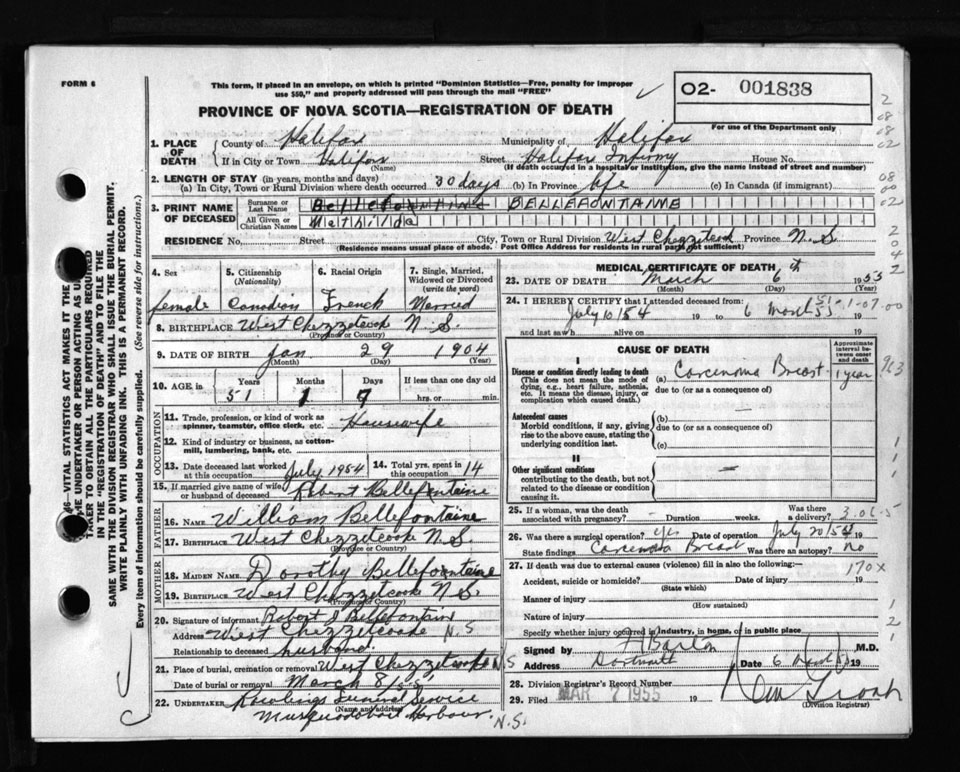 FORM 6
This form, if placed in an envelope, on which is printed "Dominion Statistics—Free, penalty for improper
use $50," and properly addressed will pass through the mail "FREE"
O2- 001838
PROVINCE OF NOVA SCOTIA—REGISTRATION OF DEATH
For use of the Department only
1. PLACE OF DEATH County of Halifax Municipality of Halifax
If in City or Town Halifax Street Halifax Infirmy House No.
(Name) (If death occurred in a hospital or institution, give the name instead of street and number)
2. LENGTH OF STAY (in years, months and days)
(a) In City, Town or Rural Division where death occurred 30 days (b) In Province life (c) In Canada (if immigrant)
3. PRINT NAME OF DECEASED Surname or Last Name BELLEFONTAINE
All Given or Christian Names Mathilda
RESIDENCE No. Street City, Town or Rural Division West Chezzetcook Province N.S.
(Residence means usual place of abode. Post Office Address for residents in rural parts not sufficient)
4. Sex female
5. Citizenship (Nationality) Canadian
6. Racial Origin French
7. Single, Married, Widowed or Divorced (write the word) Married
8. BIRTHPLACE West Chezzetcook N.S.
(Province or Country)
9. DATE OF BIRTH Jan 29 1904
(Month) (Day) (Year)
10. AGE in Years Months Days If less than one day old
51 1 7 hrs. or min.
OCCUPATION
11. Trade, profession, or kind of work as spinner, teamster, office clerk, etc. Housewife
12. Kind of industry or business, as cotton-mill, lumbering, bank, etc.
13. Date deceased last worked at this occupation July 1954 14. Total yrs. spent in this occupation 14
15. If married give name of wife or husband of deceased Robert Bellefontaine
FATHER
16. NAME William Bellefontaine
17. BIRTHPLACE West Chezzetcook N.S.
(Province or Country)
MOTHER
18. MAIDEN NAME Dorothy Bellefontaine
19. BIRTHPLACE West Chezzetcook N.S.
(Province or Country)
20. Signature of informant Robert J Bellefontain
Address West Chezzetcook N.S
Relationship to deceased husband
21. Place of burial, cremation or removal West Chezzetcook N.S
Date of burial or removal March 8/55
22. UNDERTAKER Funeral Service
(Name and address)
Musquodoboit Harbour. N.S.
MEDICAL CERTIFICATE OF DEATH
23. DATE OF DEATH March 6th 1955
(Month) (Day) (Year)
24. I HEREBY CERTIFY that I attended deceased from:
July 10/54 19 to 6 March 55 19
and last saw h alive on 19
CAUSE OF DEATH
Approximate interval between onset and death
I
Disease or condition directly leading to death (a) Carcenoma Breast 1 year
(This does not mean the mode of dying, e.g., heart failure, asthenia, etc. It means the disease, injury, or complication which caused death.)
due to (or as a consequence of)
Antecedent causes
Morbid conditions, if any, giving rise to the above cause, stating the underlying condition last.
(b) —
due to (or as a consequence of)
(c)
II
Other significant conditions
contributing to the death, but not related to the disease or condition causing it.
25. If a woman, was the death associated with pregnancy? - Duration weeks. Was there a delivery?
26. Was there a surgical operation? yes Date of operation July 20/54 19
State findings Carcenoma Breast Was there an autopsy? No
27. If death was due to external causes (violence) fill in also the following:—
170X
Accident, suicide or homicide? Date of injury 19
(State which)
Manner of injury
(How sustained)
Nature of injury
Specify whether injury occurred in industry, in home, or in public place
Signed by M.D.
Address Dartmouth Date 6 March 55 19
28. Division Registrar's Record Number
29. Filed MAR 7 1955 19
(Division Registrar)
SAME WITH THE DIVISION REGISTRAR WHO SHALL ISSUE THE BURIAL PERMIT.
WRITE PLAINLY WITH UNFADING INK. THIS IS A PERMANENT RECORD.
Every item of information should be carefully supplied. (See reverse side for instructions.)